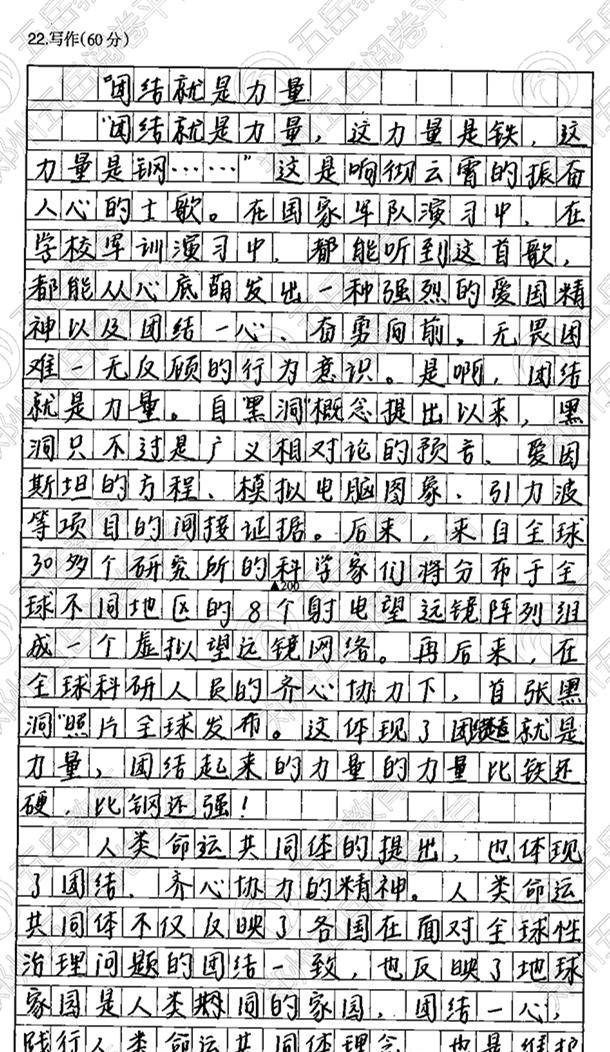 22.写作(60分)
"团结就是力量
"团结就是力量,这力量是铁,这
力量是钢……"这是响彻云霄的振奋
人心的士歌。在国家军队演习中,在
学校军训演习中,都能听到这首歌,
都能从心底萌发出一种强烈的爱国精
神以及团结一心、奋勇向前,无畏困
难一无反顾的行为意识。是啊,团结
就是力量。自"黑洞"概念提出以来,黑
洞只不过是广义相对论的预言、爱因
斯坦的方程、模拟电脑图象、引力波
等项目的间接证据。后来,来自全球
30多个研究所的科学家们将分布于全
▲200
球不同地区的8个射电望远镜阵列组
成一个虚拟望远镜网络。再后来,在
全球科研人员的齐心协力下,首张黑
洞"照片全球发布。这体现了团结就是
力量,团结起来的力量的力量比铁还
硬,比钢还强!
人类命运共同体的提出,也体现
了团结、齐心协力的精神。人类命运
共同体不仅反映了各国在面对全球性
治理问题的团结一致,也反映了地球
家园是人类共同的家园,团结一心,
践行人类命运共同体理念,也是维护